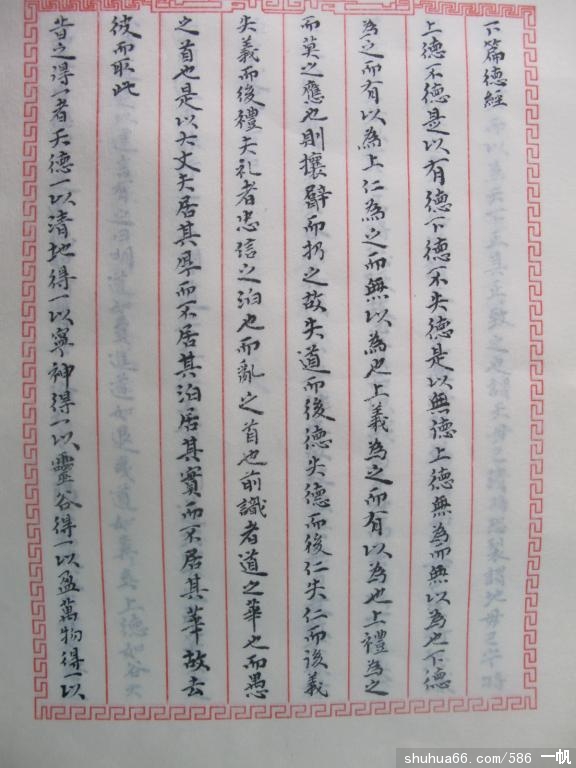 下篇德經
上德不德是以有德下德不失德是以無德上德無為而無以為也下德
為之而有以為上仁為之而無以為也上義為之而有以為也上禮為之
而莫之應也則攘臂而扔之故失道而後德失德而後仁失仁而後義
失義而後禮夫礼者忠信之泊也而亂之首也前識者道之華也而愚
之首也是以大丈夫居其厚而不居其泊居其實而不居其華故去
彼而取此
昔之得一者天德一以清地得一以寧神得一以靈谷得一以盈萬物得一以
shuhua66.com/586 一帆